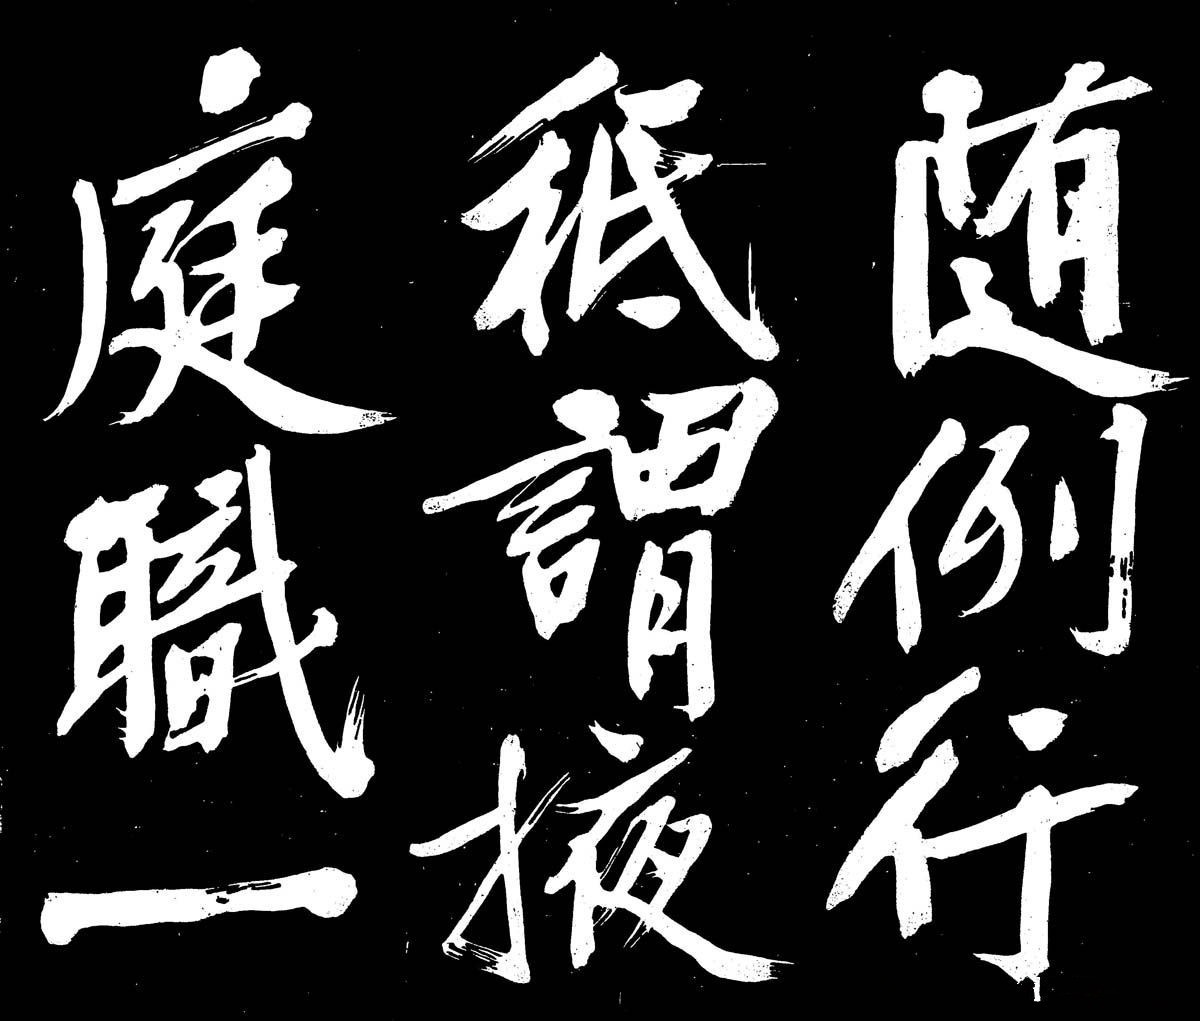 随例行
祗謂掖
庭職一